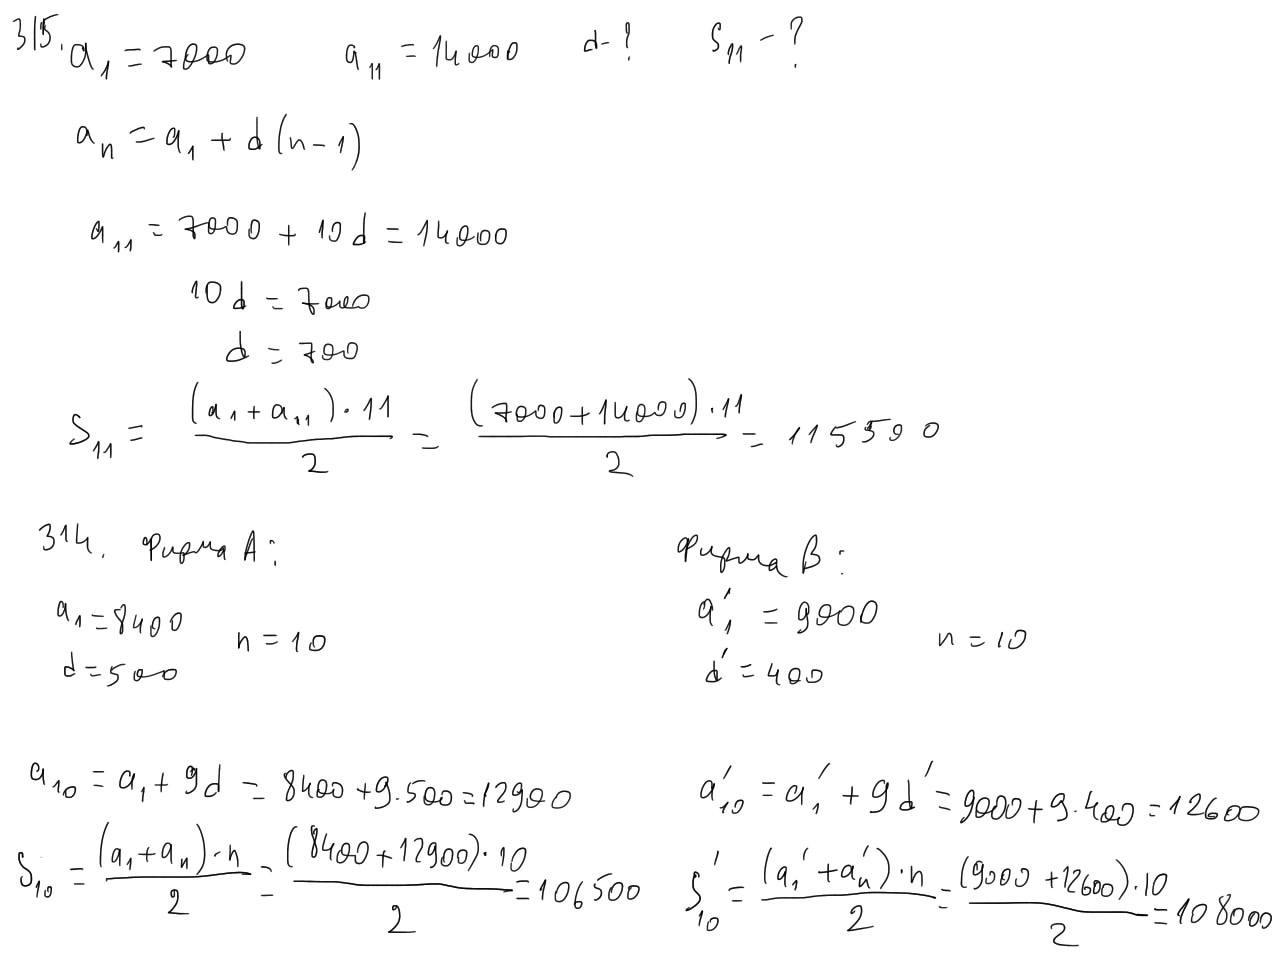 315. a₁ = 7000 a₁₁ = 14000 d - ? S₁₁ - ?
aₙ = a₁ + d(n-1)
a₁₁ = 7000 + 10d = 14000
10d = 7000
d = 700
S₁₁ = (a₁ + a₁₁)·11 / 2 = (7000 + 14000)·11 / 2 = 115500
314. Фирма А:
a₁ = 8400
d = 500
n = 10
Фирма В:
a′₁ = 9000
d′ = 400
n = 10
a₁₀ = a₁ + 9d = 8400 + 9·500 = 12900
S₁₀ = (a₁ + aₙ)·n / 2 = (8400 + 12900)·10 / 2 = 106500
a′₁₀ = a′₁ + 9d′ = 9000 + 9·400 = 12600
S′₁₀ = (a₁′ + aₙ′)·n / 2 = (9000 + 12600)·10 / 2 = 108000